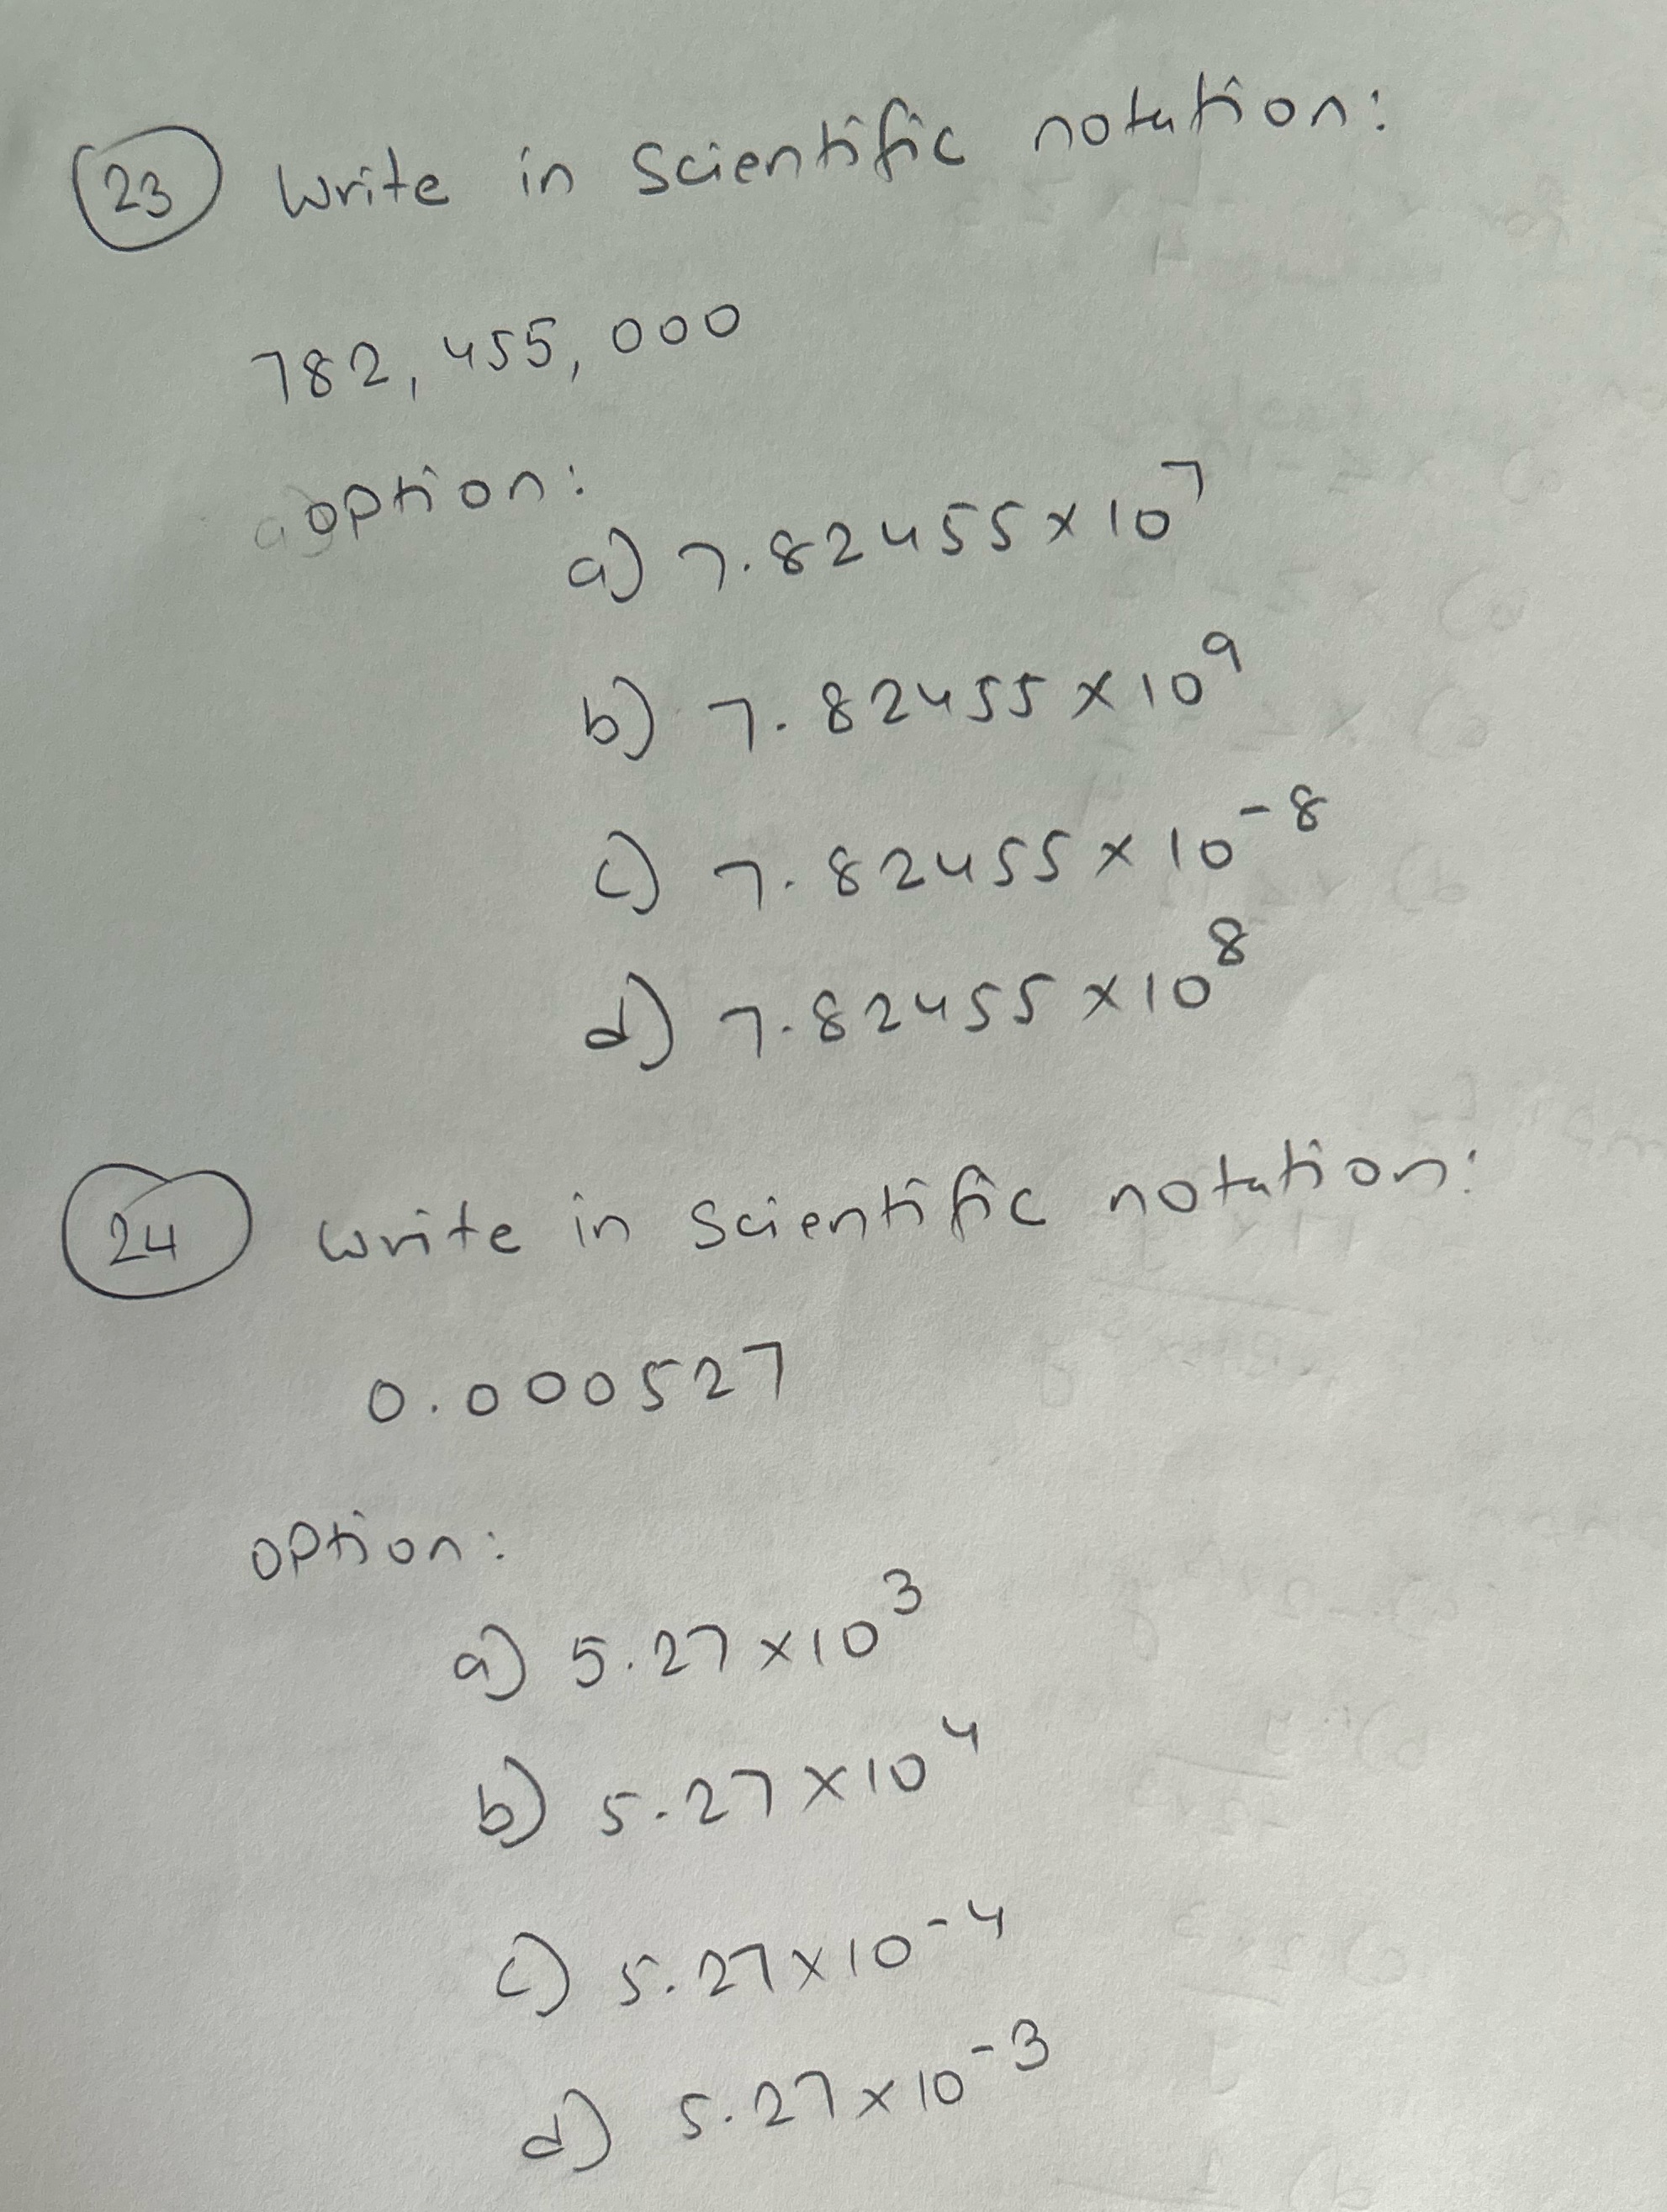 23 Write in Scientific notation:
782,455,000
option:
a) 7.82455 × 10⁷
b) 7.82455 × 10⁹
c) 7.82455 × 10⁻⁸
d) 7.82455 × 10⁸
24 write in scientific notation:
0.000527
option:
a) 5.27 × 10³
b) 5.27 × 10⁴
c) 5.27 × 10⁻⁴
d) 5.27 × 10⁻³